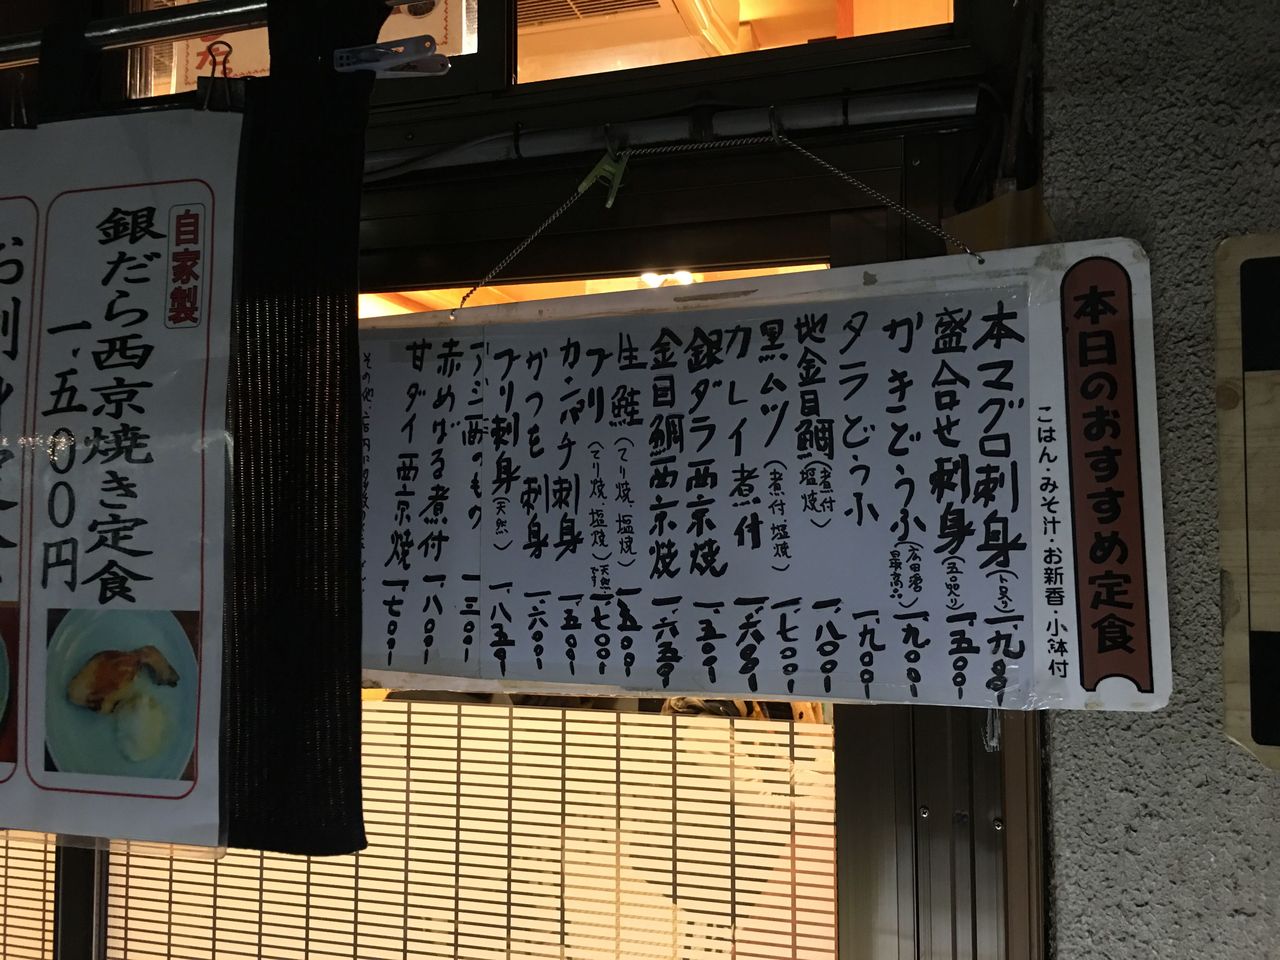 本日のおすすめ定食
ごはん・みそ汁・お新香・小鉢付
本マグロ刺身(トロ入り) 一、九〇〇
盛合せ刺身(五品入り) 一、五〇〇
かきどうふ(広田湾 最高品) 一、九〇〇
タラどうふ 一、九〇〇
地金目鯛(煮付 塩焼) 一、八〇〇
黒ムツ(煮付 塩焼) 一、七〇〇
カレイ煮付 一、六〇〇
銀ダラ西京焼 一、五〇〇
金目鯛西京焼 一、六五〇
生鮭(てり焼、塩焼) 一、五〇〇
ブリ(てり焼、塩焼)天然です。 一、七〇〇
カンパチ刺身 一、五〇〇
かつを刺身 一、六〇〇
ブリ刺身(天然) 一、八五〇
一、三〇〇
赤めばる煮付 一、八〇〇
甘ダイ西京焼 一、七〇〇
自家製
銀だら西京焼き定食
一、五〇〇円